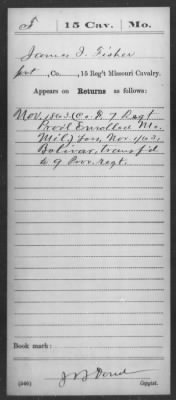 F | 15 Cav. | Mo.
James I. Fisher
pvt, Co. , 15 Reg't Missouri Cavalry.
Appears on Returns as follows:
Nov. 1863 (Co. E. 7 Regt
Prov'l Enrolled Mo.
Mil.) loss, Nov. 1863,
Bolivar, transf'd
to 9 Prov. regt.
Book mark:
(546)
Copyist.